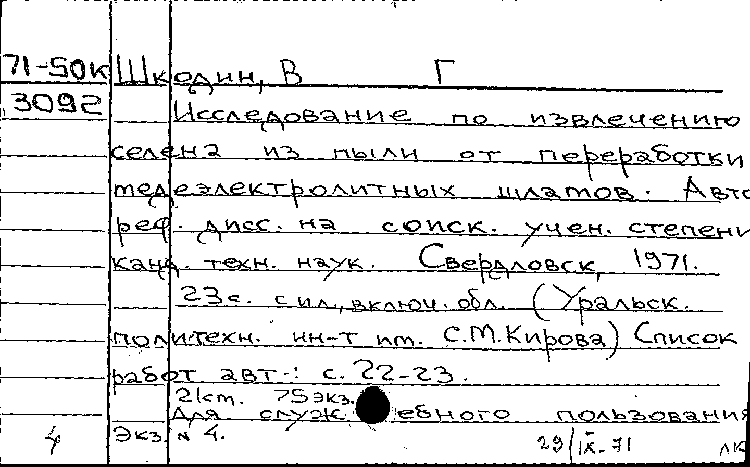 71-50к Шкодин, В Г
3092 Исследование по извлечению
селена из пыли от переработки
медеэлектролитных шламов. Авто
реф. дисс. на соиск. учен. степени
канд. техн. наук. Свердловск, 1971.
23с. с ил., включ. обл. (Уральск.
политехн. ин-т им. С.М.Кирова) Список
работ авт.: с. 22-23.
21см. 75экз.
Для служебного пользования
4 Экз. № 4. 29/IX-71 лк